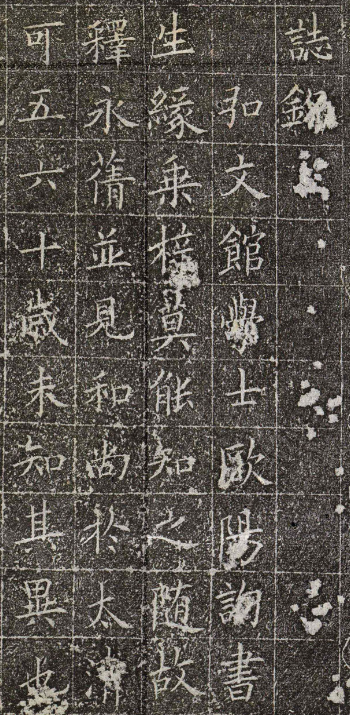 誌銘
弘文館學士歐陽詢書
生緣乗梓莫能知之随故
釋永蒨並見和尚於太清
可五六十歲未知其異也